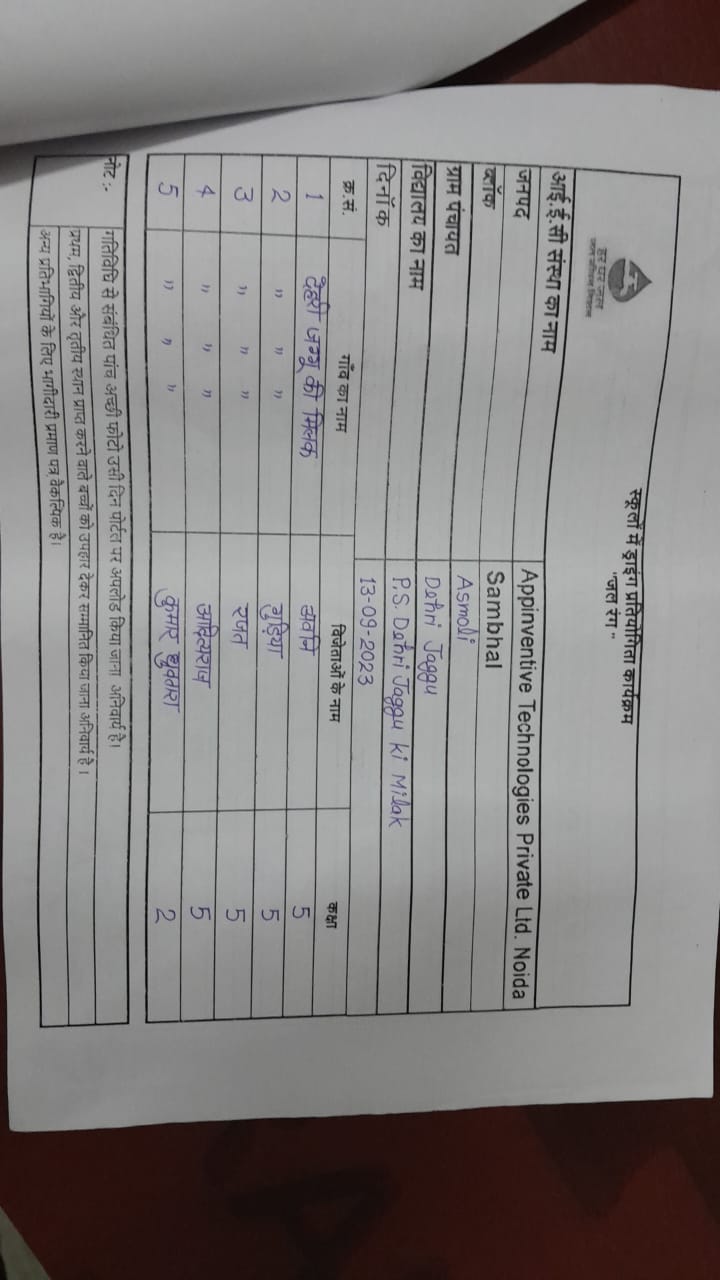 हर घर जल
जल जीवन मिशन
स्कूलों में ड्राइंग प्रतियोगिता कार्यक्रम
"जल रंग"
आई.ई.सी संस्था का नाम Appinventive Technologies Private Ltd. Noida
जनपद Sambhal
ब्लॉक Asmoli
ग्राम पंचायत Dehri Jaggu
विद्यालय का नाम P.S. Dehri Jaggu ki Milak
दिनॉक 13-09-2023
क्र.सं. गाँव का नाम विजेताओं के नाम कक्षा
1 देहरी जग्गू की मिलक अवनि 5
2 " " " गुड़िया 5
3 " " " रजत 5
4 " " " आदित्यराज 5
5 " " " कुमार 2
नोट :- गतिविधि से संबंधित पांच अच्छी फोटो उसी दिन पोर्टल पर अपलोड किया जाना अनिवार्य है।
प्रथम, द्वितीय और तृतीय स्थान प्राप्त करने वाले बच्चों को उपहार देकर सम्मानित किया जाना अनिवार्य है।
अन्य प्रतिभागियों के लिए भागीदारी प्रमाण पत्र वैकल्पिक है।